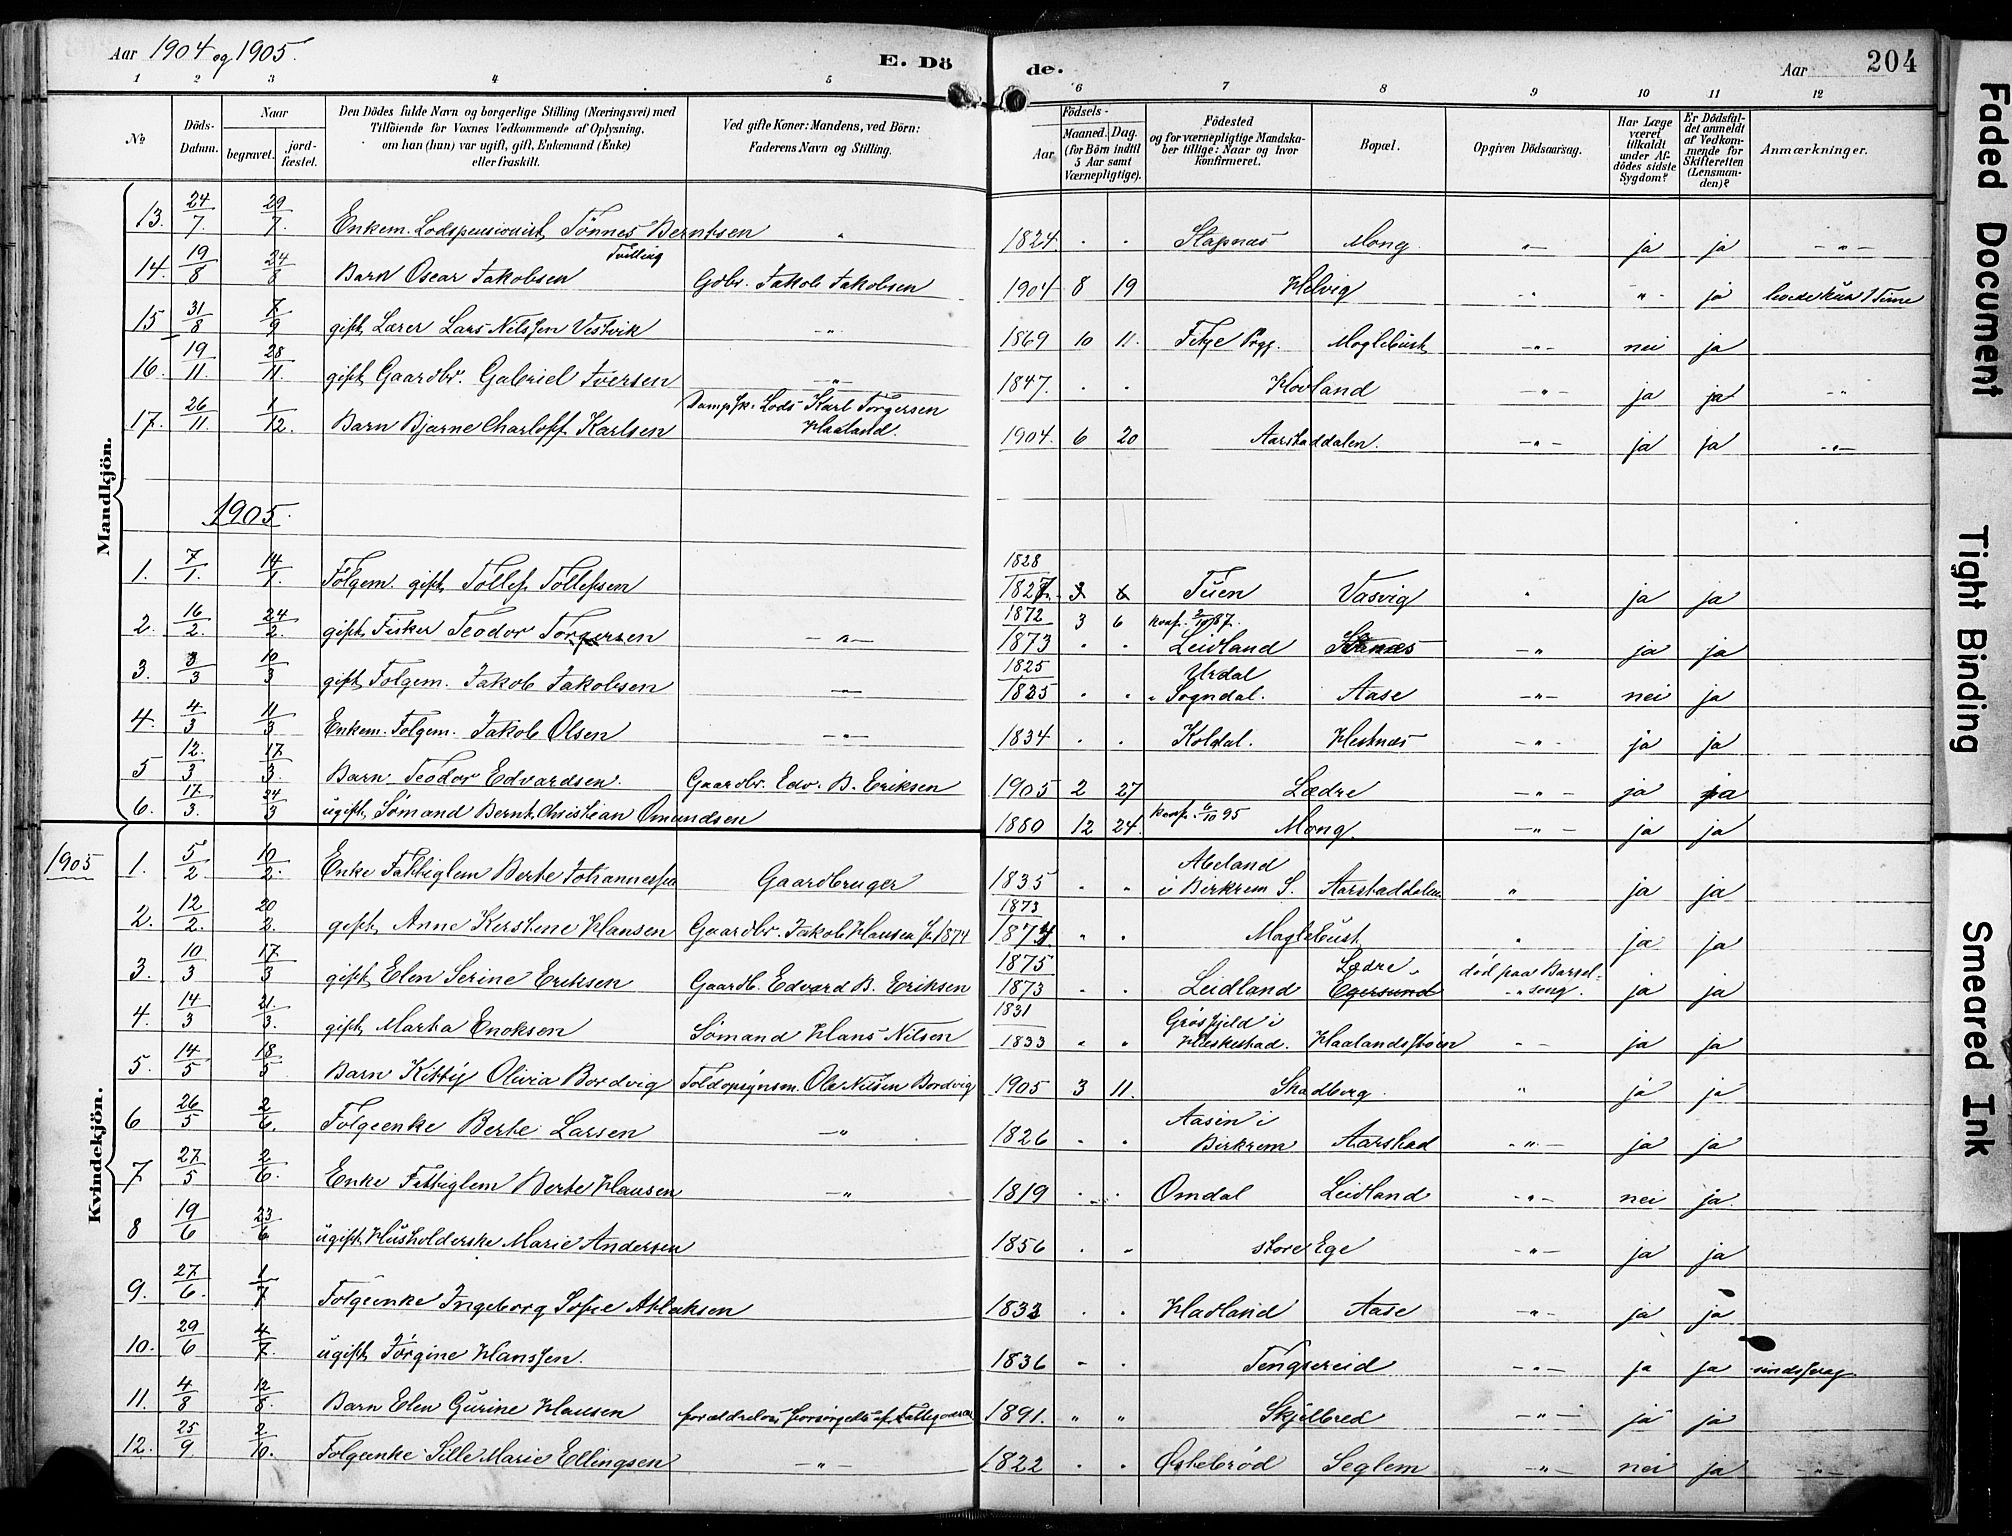 Aar 1904 og 1905.
E. Dö
de.
Aar
204
1 2 3 4 5 6 7 8 9 10 11 12
No
Döds-Datum.
Naar
begravet. jord-fæstet.
Den Dödes fulde Navn og borgerlige Stilling (Næringsvei) med
Tilföiende for Voxnes Vedkommende af Oplysning,
om han (hun) var ugift, gift, Enkemand (Enke)
eller fraskilt.
Ved gifte Koner: Mandens, ved Börn:
Faderens Navn og Stilling.
Födsels-
Aar Maaned. Dag.
(for Börn indtil
5 Aar samt
Værnepligtige).
Födested
og for værnepligtige Mandska-
ber tillige: Naar og hvor
konfirmeret.
Bopæl.
Opgiven Dödsaarsag.
Har Læge
været
tilkaldt
under Af-
dödes sidste
Sygdom?
Er Dödsfal-
det anmeldt
af Vedkom-
mende for
Skifteretten
(Lensman-
den)?
Anmærkninger.
Mandkjön.
13. 24/7. 29/7. Enkem. Lodspensionist, Tönnes Berntsen " 1824. " " Stapnæs Mong. -"- ja ja -"-
Tvilling
14. 19/8 24/8 Barn Oscar Jakobsen Gdbr. Jakob Jakobsen 1904 8 19 Helvig " " ja levede kun 1 Time
15 31/8 7/9 gift, Lærer Lars Nilssen Vestvik -"- 1869 10 11. Fitje Prgj. Maglebust -"- nei ja
16. 19/11. 28/11. gift Gaardbr. Gabriel Iversen -"- 1847. " " Hovland -"- ja ja -"-
Dampsk. Lods Karl Torgersen
17. 26/11 1/12. Barn Bjarne Charloff Karlsen Haaland. 1904. 6 20 Aarstaddalen. -"- ja ja -"-
1905.
1828
1. 7/1. 14/1. Fölgem. gift Tollef Tollefsen 1827. 3 6 Tuen Vasvig " ja ja
1872 3 6 konf. 2/10 87.
2. 16/2. 24/2. gift Fisker Teodor Torgersen -"- 1873 " " Leidland Stanæs -"- ja ja
1825 Urdal
3. 3/3 10/3 gift Folgem. Jakob Jakobsen -"- 1835 " " Sogndal. Aase -"- nei ja
4. 4/3 11/3 Enkem. Folgem. Jakob Olsen -"- 1834 " " Koldal. Hestnæs -"- ja ja
5 12./3 17/3. Barn Teodor Edvardsen. Gaardbr. Edv. B. Eriksen 1905 2 27 Lædre -"- ja ja
6. 17/3. 24/3 ugift, Sømand Bernt Christian Omundsen 1880 12 24. konf. 6/10 95 Mong. -"- ja ja
Kvindekjön.
1905
Abeland
1. 5/2 10/2. Enke Fattiglem Berte Johannesen Gaardbruger 1835 " " i Birkrem S. Aarstaddalen " ja ja
1873
2. 12/2. 20/2. gift, Anne Kirstine Hansen Gaardbr. Jakob Hansen f. 1874 1874 " " Maglebust " ja ja
1875 Lædre død paa Barsel-
3. 10/3 17/3 gift Elen Serine Eriksen Gaardb. Edvard B. Eriksen 1873 " " Leidland Egersund seng. ja ja
1831 Grøsfjeld i
4. 14/3 21/3. gift Marta Enoksen Sømand Hans Nilsen 1833 " " Heskestad. Haalandsstøen " ja ja
5. 14/5 18/5 Barn Kitty Olivia Bordvig Toldopsynsm. Ole Nilsen Bordvig 1905 3 11. Skadberg. " ja ja
Aasen i
6 26/5 2/6. Folgeenke Berte Larsen -"- 1826 " " Birkrem Aarstad -"- ja ja
7 27/5 2/6. Enke Fattiglem Berte Hansen -"- 1819 " " Omdal Leidland -"- nei ja.
8 19/6 23/6. ugift Husholderske Marie Andersen 1856 " " store Ege -"- ja ja
9. 27./6. 1/7 Folgeenke Ingeborg Sofie Aslaksen 1832 " " Hadland Aase -"- ja ja
10. 29/6 4/7. ugift Jörgine Hanssen. 1836 " " Tengsereid -"- ja ja sindssvag
11. 4/8 12/8. Barn Elen Gurine Hansen forældreløs forsørgedes af Fattigvæsen 1891. " " Skjelbred -"- ja ja
12. 25/9 2/10. Folgeenke Sille Marie Ellingsen -"- 1822 " " Østebrød Seglem -"- nei ja -"-
Faded Document
Tight Binding
Smeared Ink